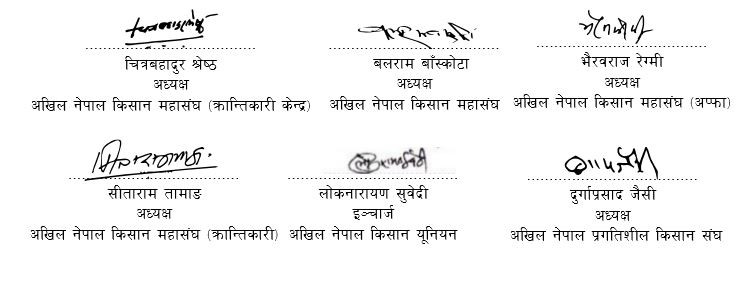 चित्रबहादुर श्रेष्ठ
अध्यक्ष
अखिल नेपाल किसान महासंघ (क्रान्तिकारी केन्द्र)
बलराम बाँस्कोटा
अध्यक्ष
अखिल नेपाल किसान महासंघ
भैरवराज रेग्मी
अध्यक्ष
अखिल नेपाल किसान महासंघ (अप्फा)
सीताराम तामाङ
अध्यक्ष
अखिल नेपाल किसान महासंघ (क्रान्तिकारी)
लोकनारायण सुवेदी
इञ्चार्ज
अखिल नेपाल किसान यूनियन
दुर्गाप्रसाद जैसी
अध्यक्ष
अखिल नेपाल प्रगतिशील किसान संघ